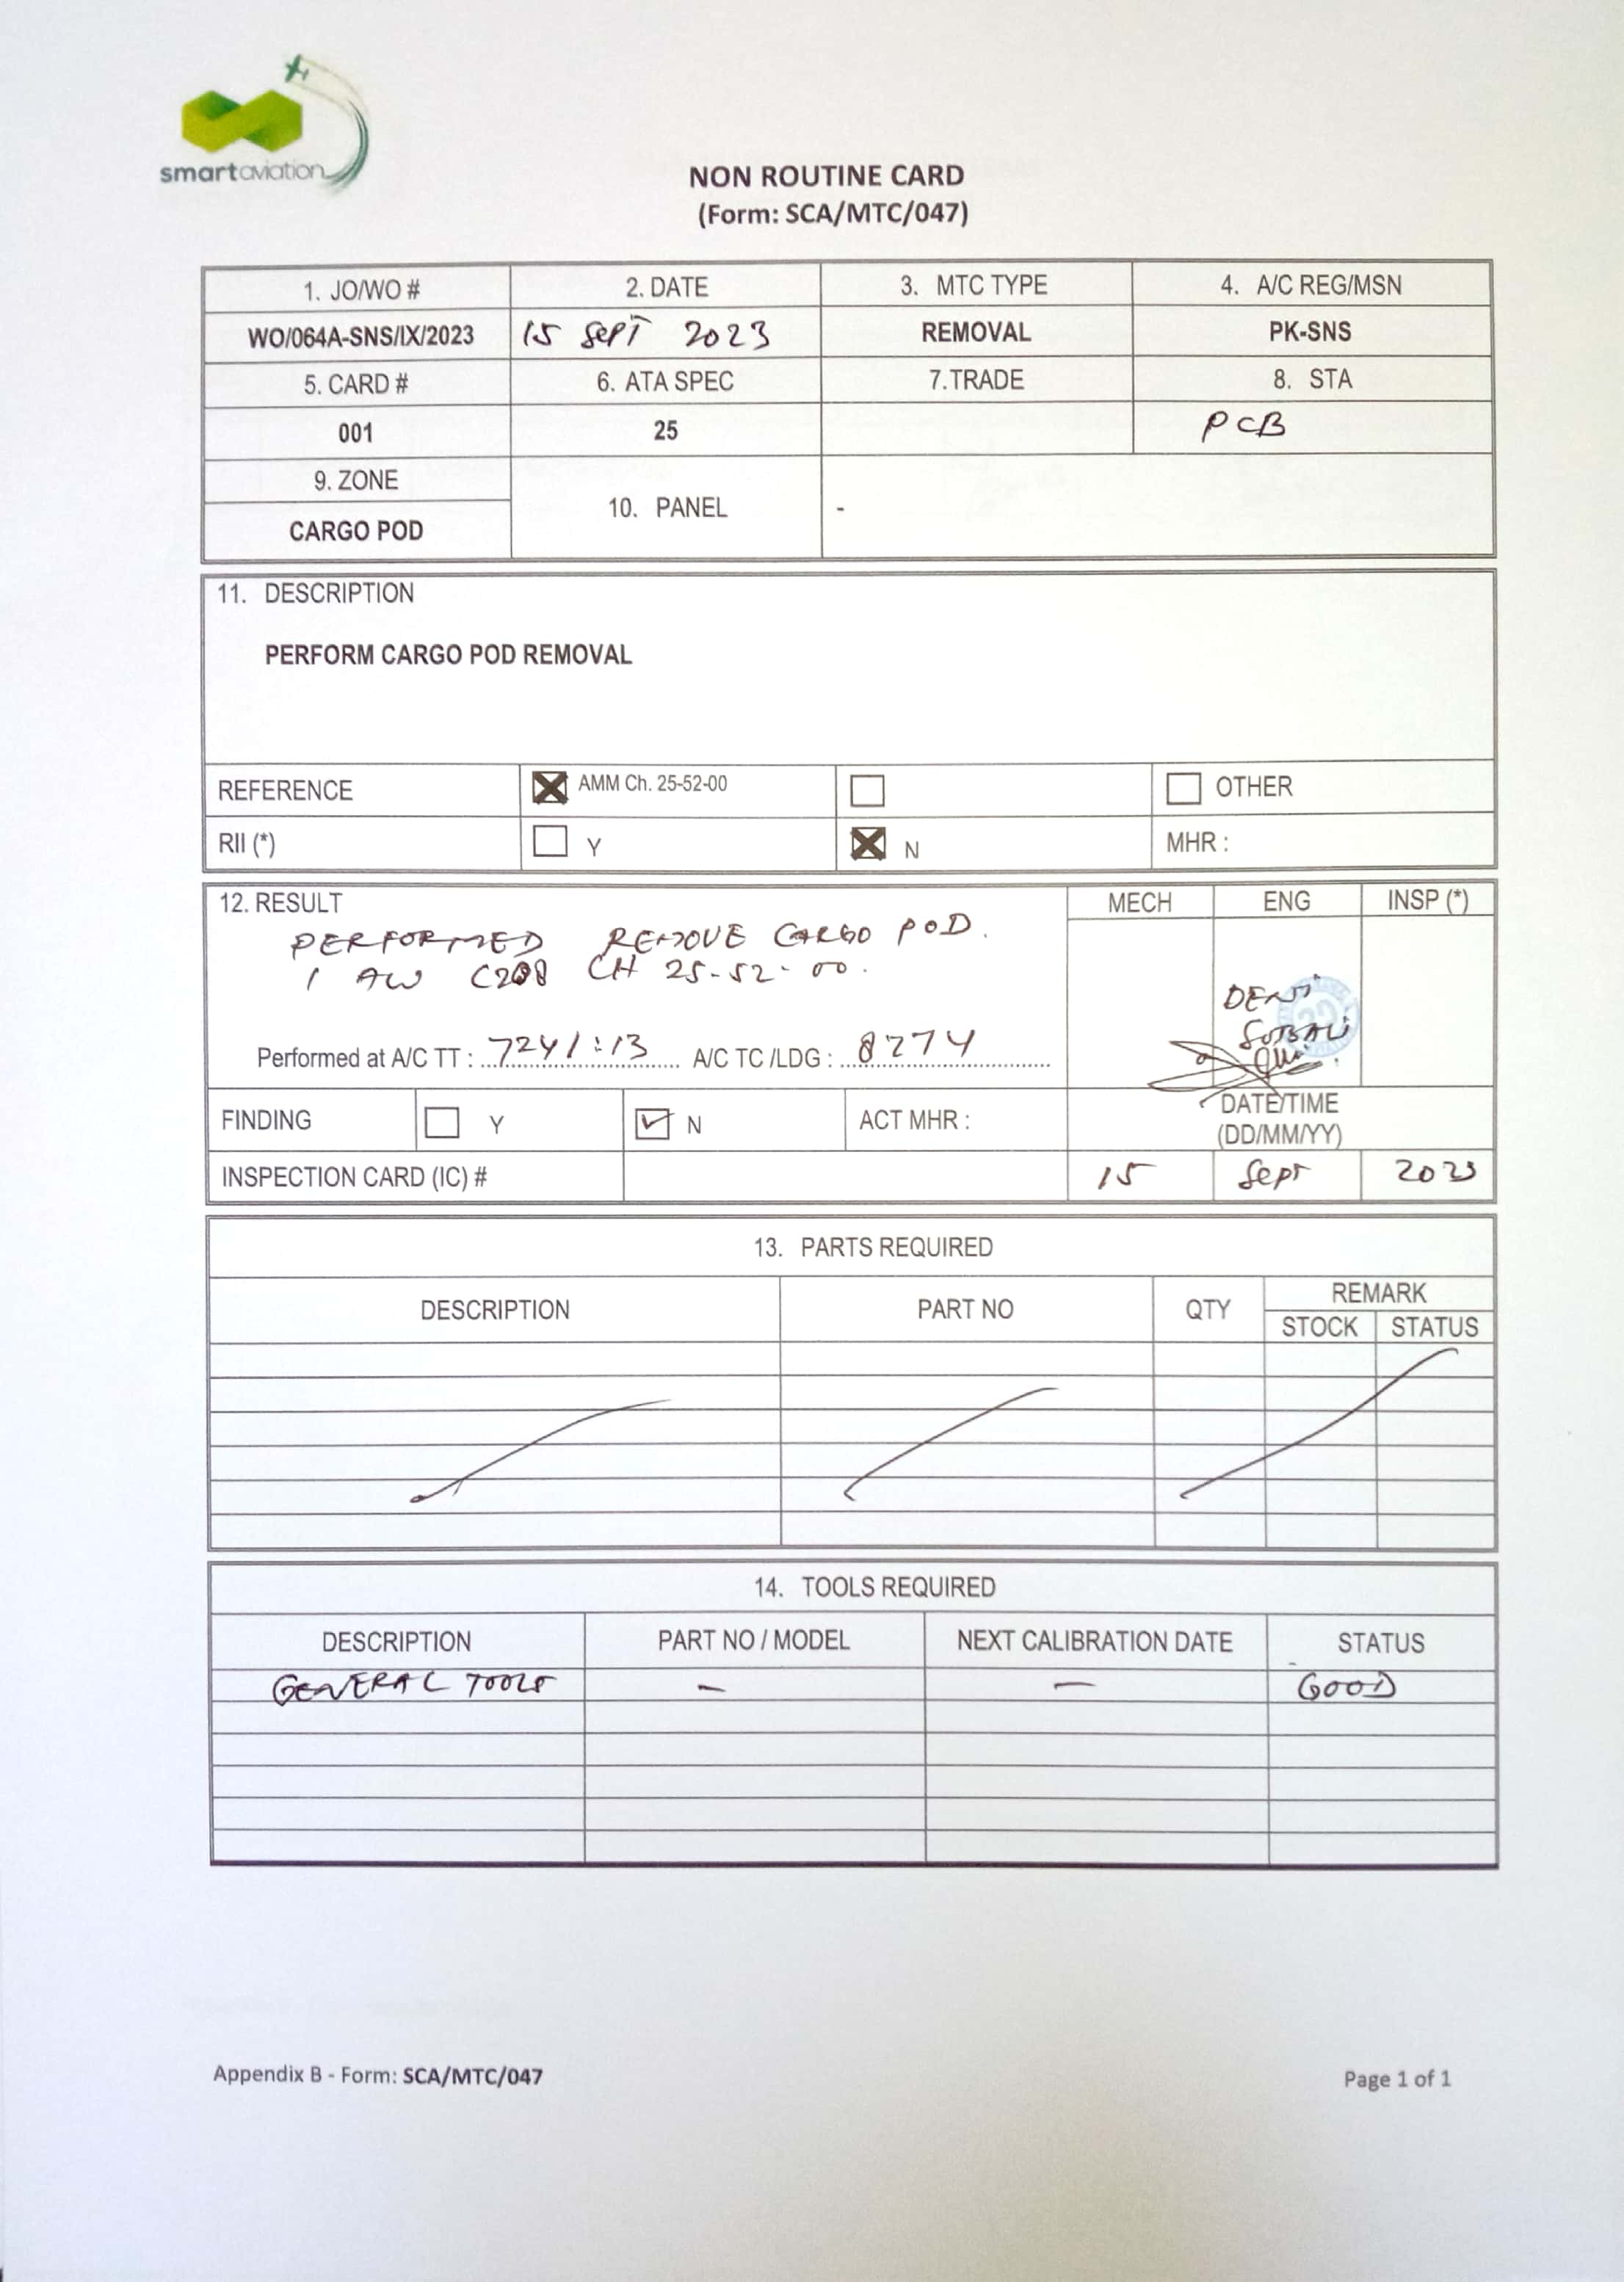 smartaviation
NON ROUTINE CARD
(Form: SCA/MTC/047)
1. JO/WO # 2. DATE 3. MTC TYPE 4. A/C REG/MSN
WO/064A-SNS/IX/2023 15 SEPT 2023 REMOVAL PK-SNS
5. CARD # 6. ATA SPEC 7.TRADE 8. STA
001 25 PCB
9. ZONE 10. PANEL -
CARGO POD
11. DESCRIPTION
PERFORM CARGO POD REMOVAL
REFERENCE AMM Ch. 25-52-00 OTHER
RII (*) Y N MHR :
12. RESULT MECH ENG INSP (*)
PERFORMED REMOVE CARGO POD.
IAW C208 CH 25-52-00.
DENI
Performed at A/C TT : 7241:13 A/C TC /LDG : 8274
FINDING Y N ACT MHR : DATE/TIME
(DD/MM/YY)
INSPECTION CARD (IC) # 15 Sept 2023
13. PARTS REQUIRED
DESCRIPTION PART NO QTY REMARK
STOCK STATUS
14. TOOLS REQUIRED
DESCRIPTION PART NO / MODEL NEXT CALIBRATION DATE STATUS
GENERAL TOOLS - - GOOD
Appendix B - Form: SCA/MTC/047 Page 1 of 1